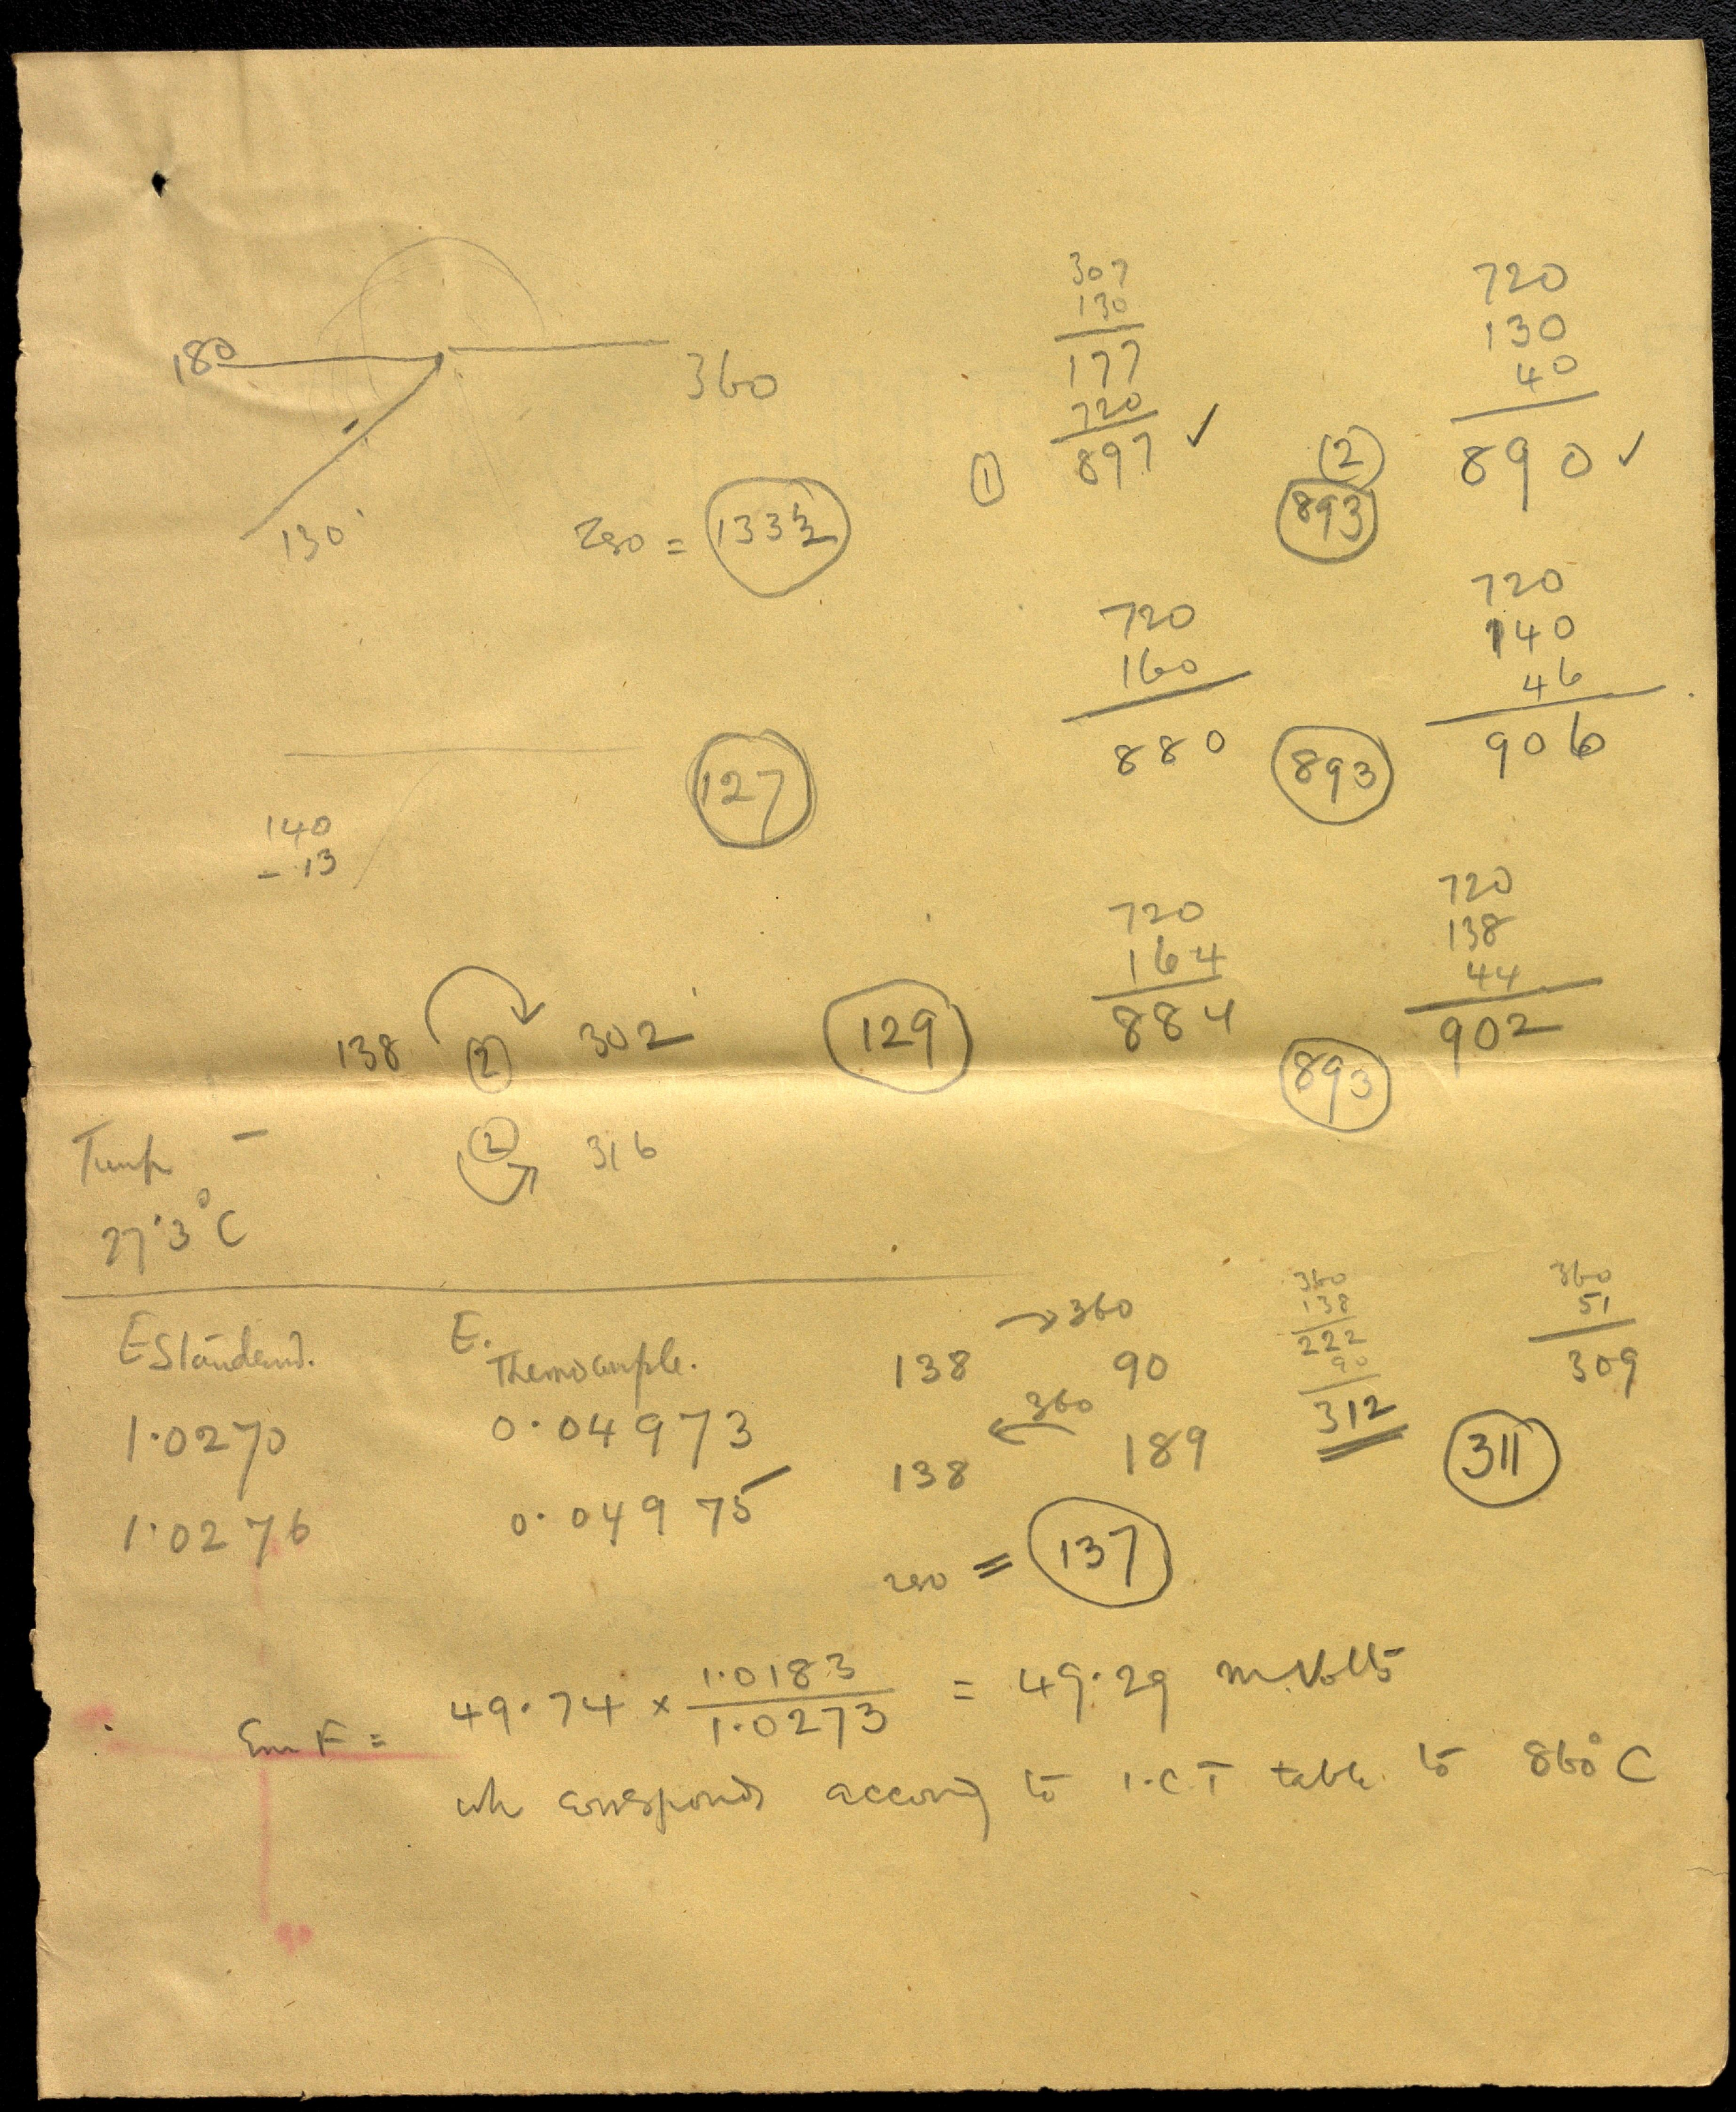 180
360
130
zero = 133½
307
130
177
720
① 897 ✓
720
130
40
② 890 ✓
893
720
160
880
893
720
140
46
906
127
140
- 13
720
164
884
893
720
138
44
902
138 ② 302
129
② 316
Temp -
27·3°C
E Standard.
E. Thermocouple.
1·0270 0·04973
1·0276 0·04975
→360
138 90
360
←
138 189
zero = 137
360
138
222
90
312
360
51
309
311
EmF = 49·74 × 1·0183 / 1·0273 = 49·29 m.Volts
wh corresponds accordg to I.C.T table to 860°C